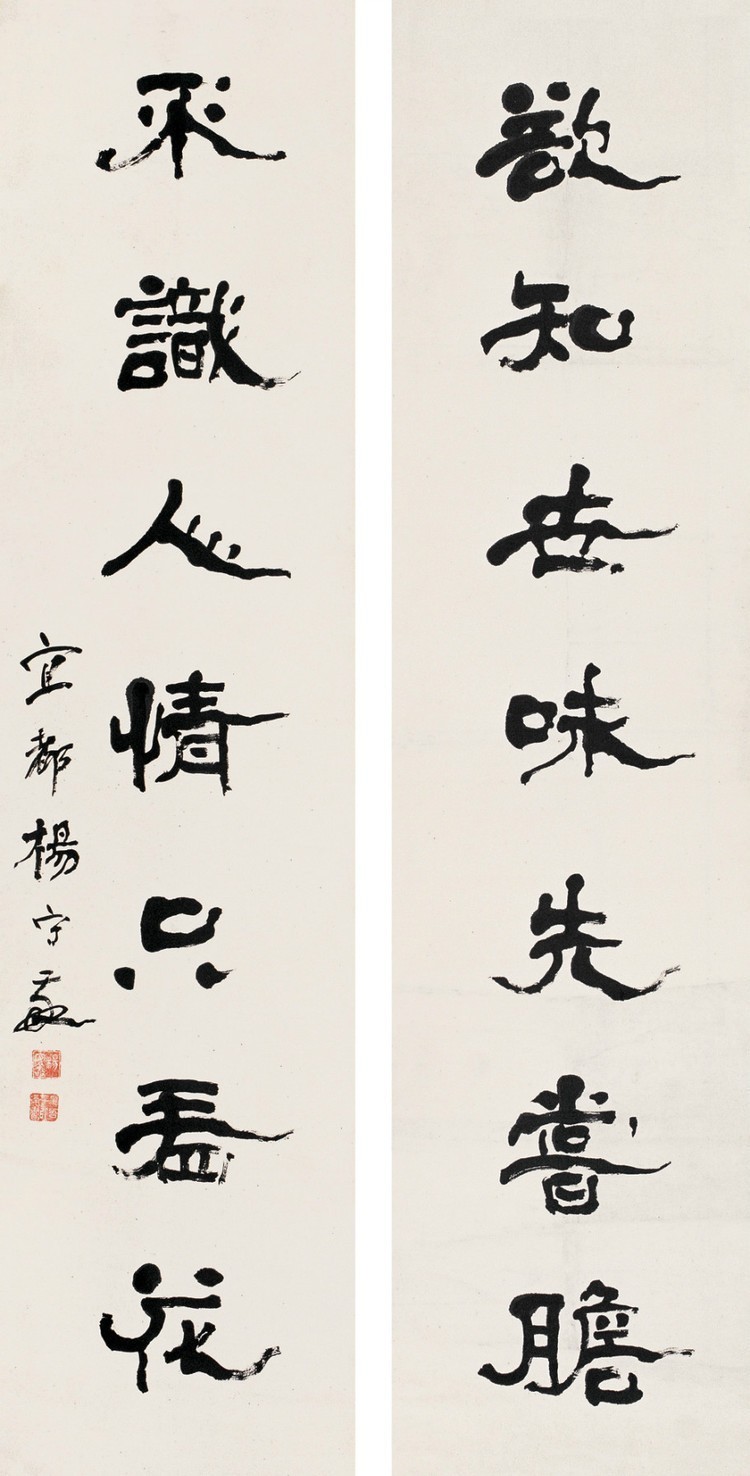 欲知世味先嘗膽
不識人情只看花
宜都楊守敬